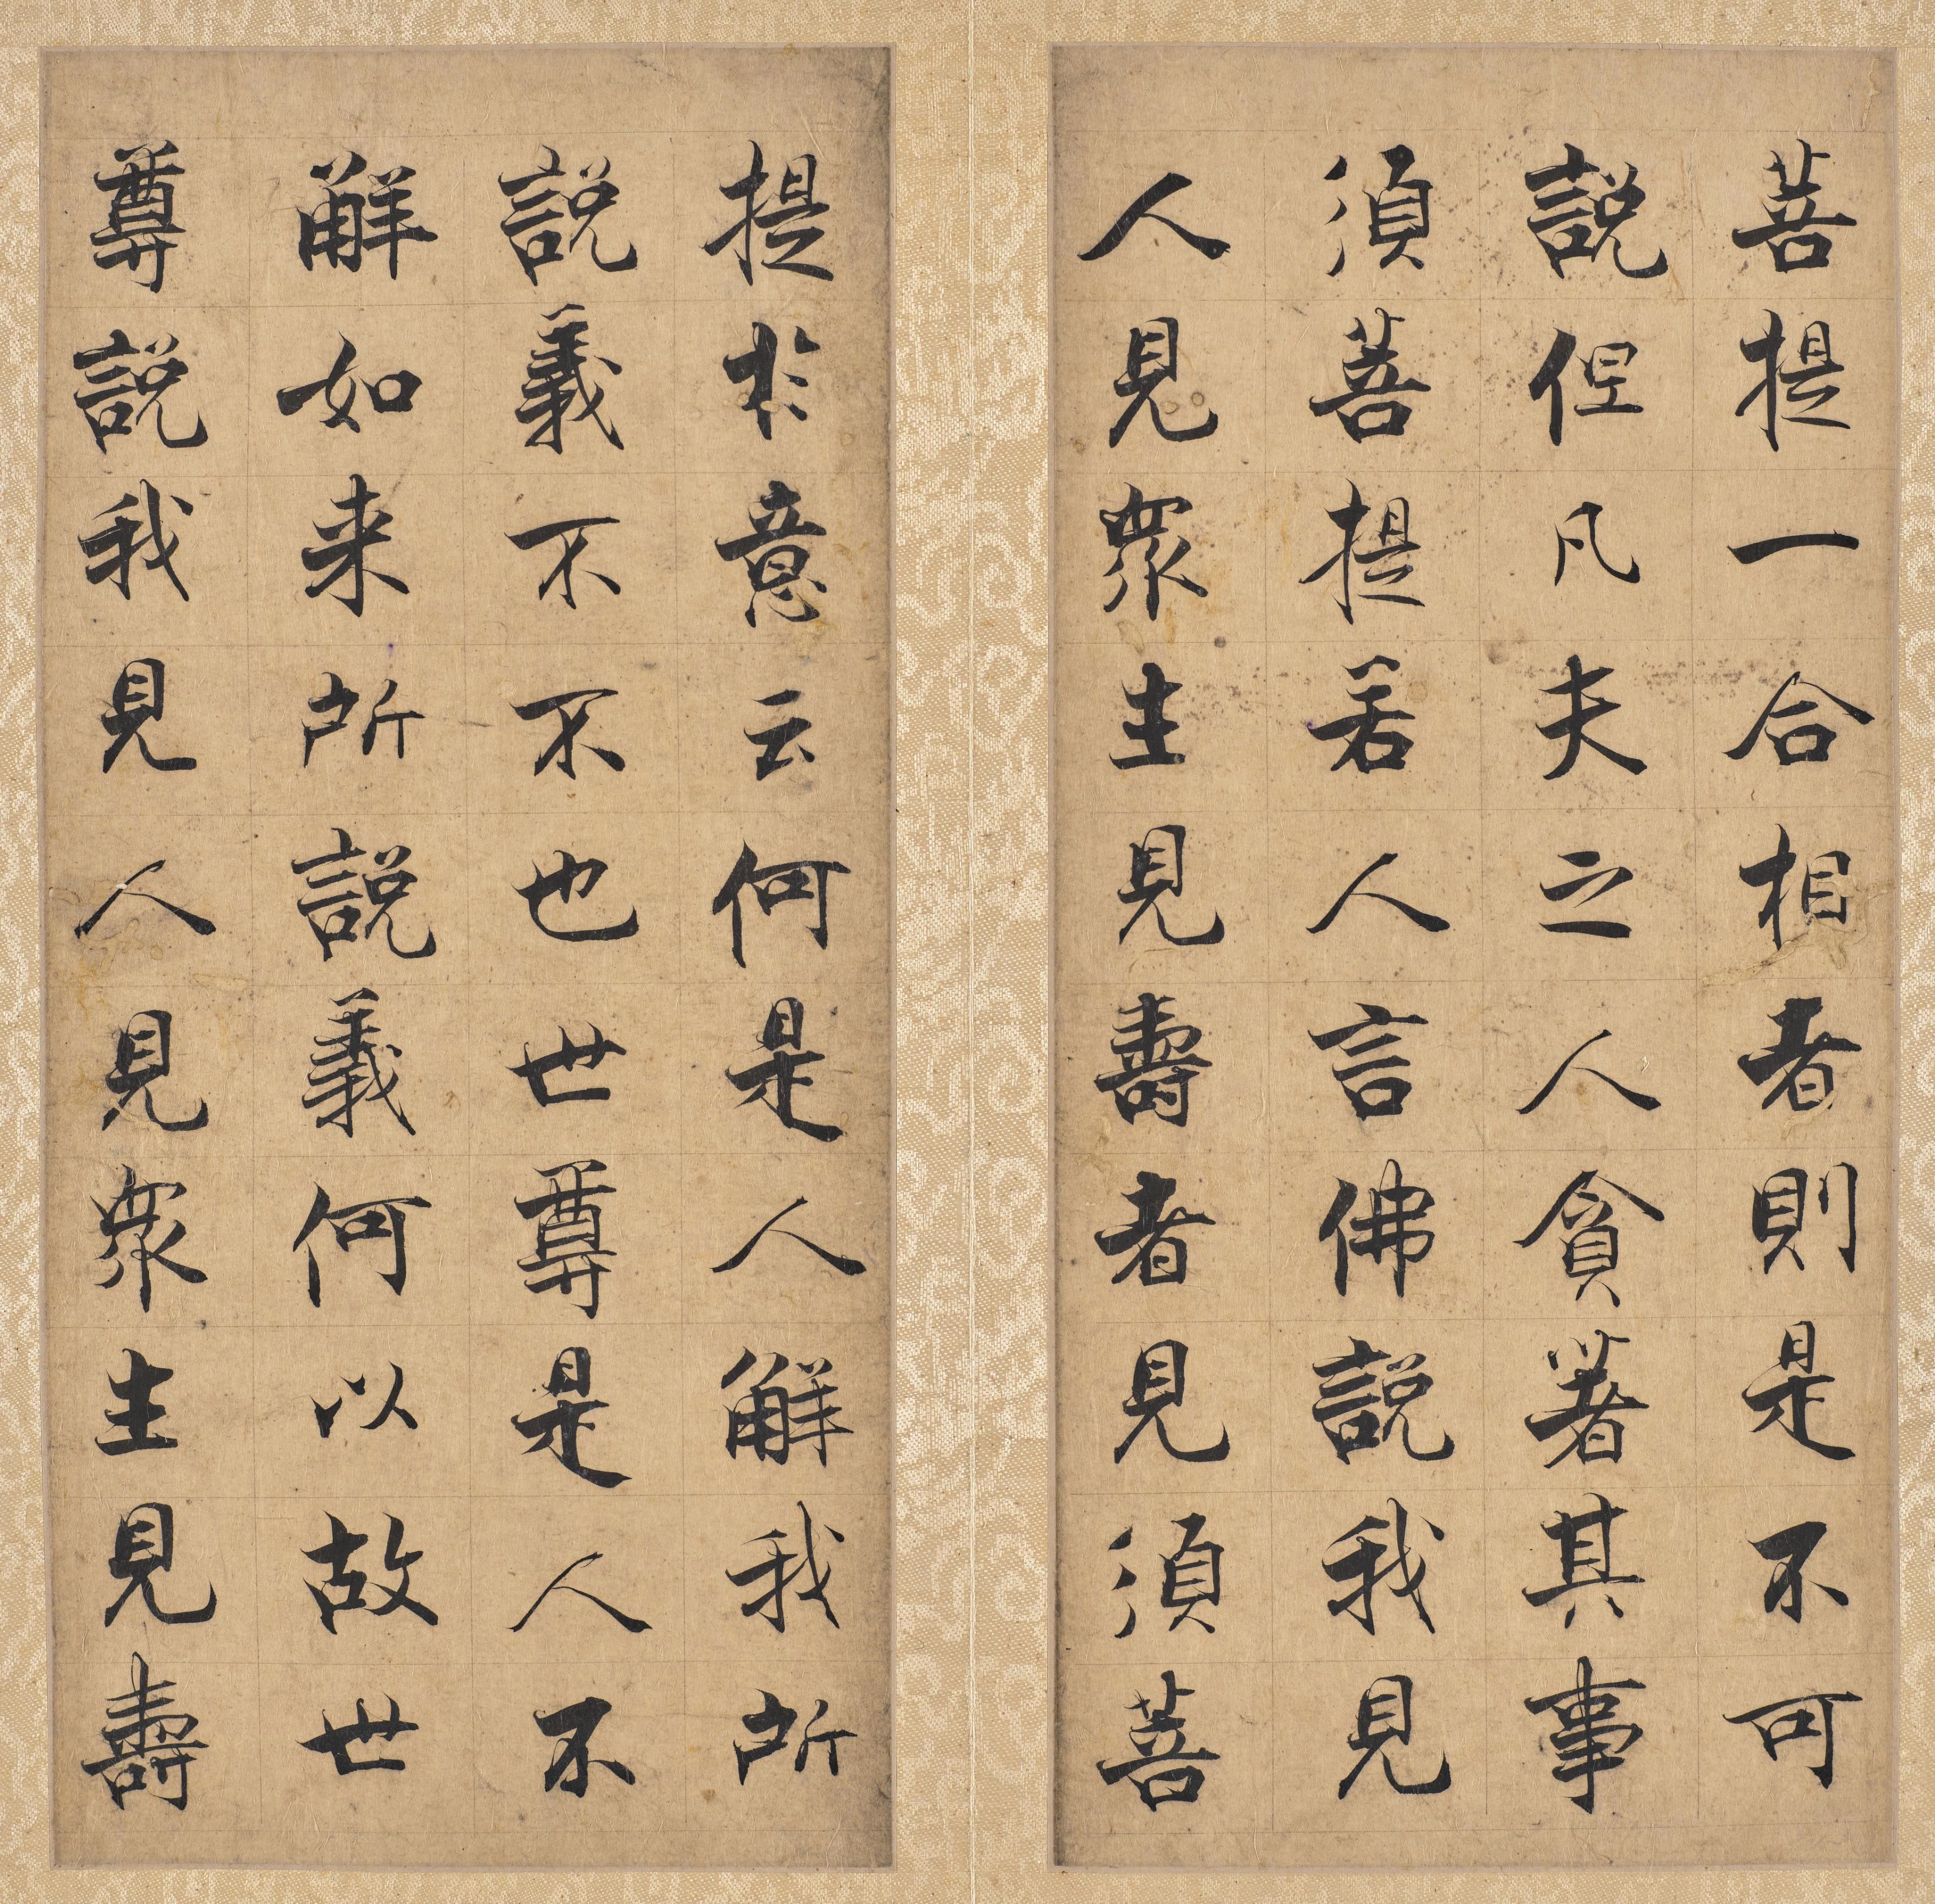 菩提一合相者則是不可
說但凡夫之人貪著其事
須菩提若人言佛說我見
人見衆生見壽者見須菩
提於意云何是人解我所
說義不不也世尊是人不
解如来所說義何以故世
尊說我見人見衆生見壽